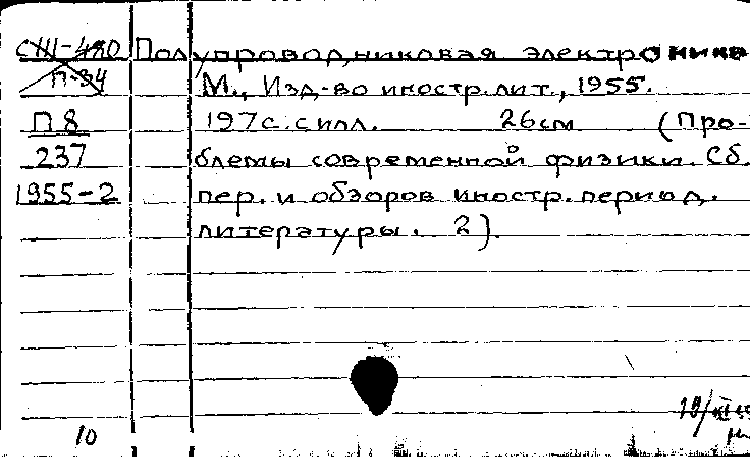 СШ-480 Полупроводниковая электроника
П-34 М., Изд-во иностр. лит., 1955.
П 8 197с. с илл. 26см (Про-
237 блемы современной физики. Сб.
1955-2 пер. и обзоров иностр. период.
литературы. 2).
10